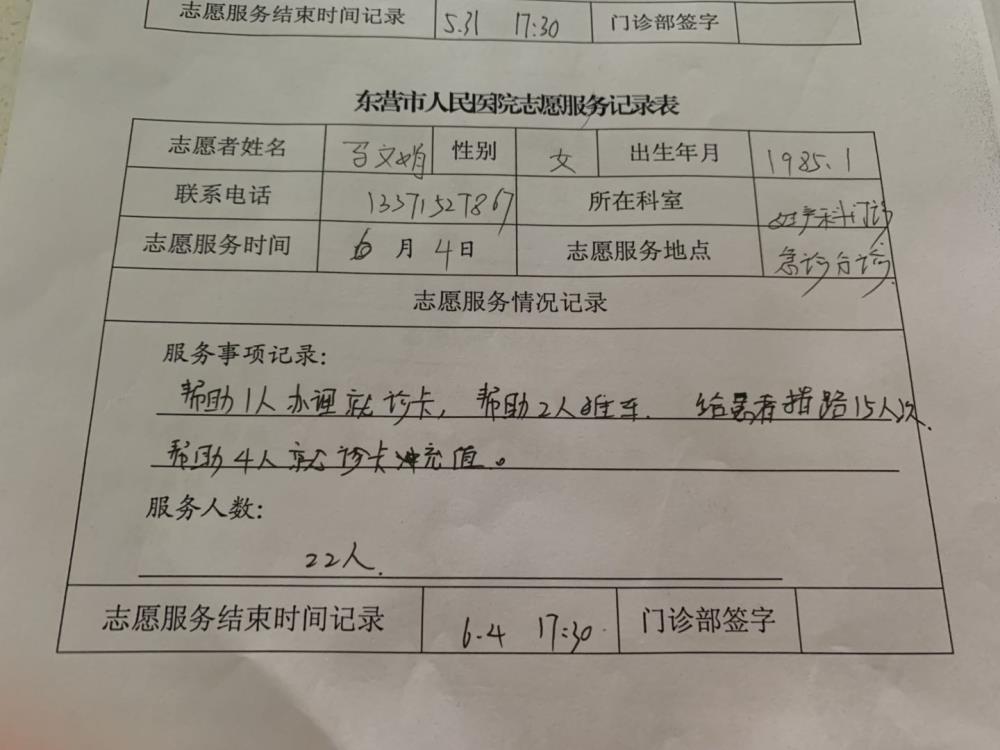 志愿服务结束时间记录 5.31 17:30 门诊部签字
东营市人民医院志愿服务记录表
志愿者姓名 马文娟 性别 女 出生年月 1985.1
联系电话 13371527867 所在科室 妇产科门诊
志愿服务时间 6月4日 志愿服务地点 急诊分诊
志愿服务情况记录
服务事项记录:
帮助1人办理就诊卡, 帮助2人推车. 给患者指路15人次.
帮助4人就诊卡充值。
服务人数:
22人.
志愿服务结束时间记录 6.4 17:30 门诊部签字